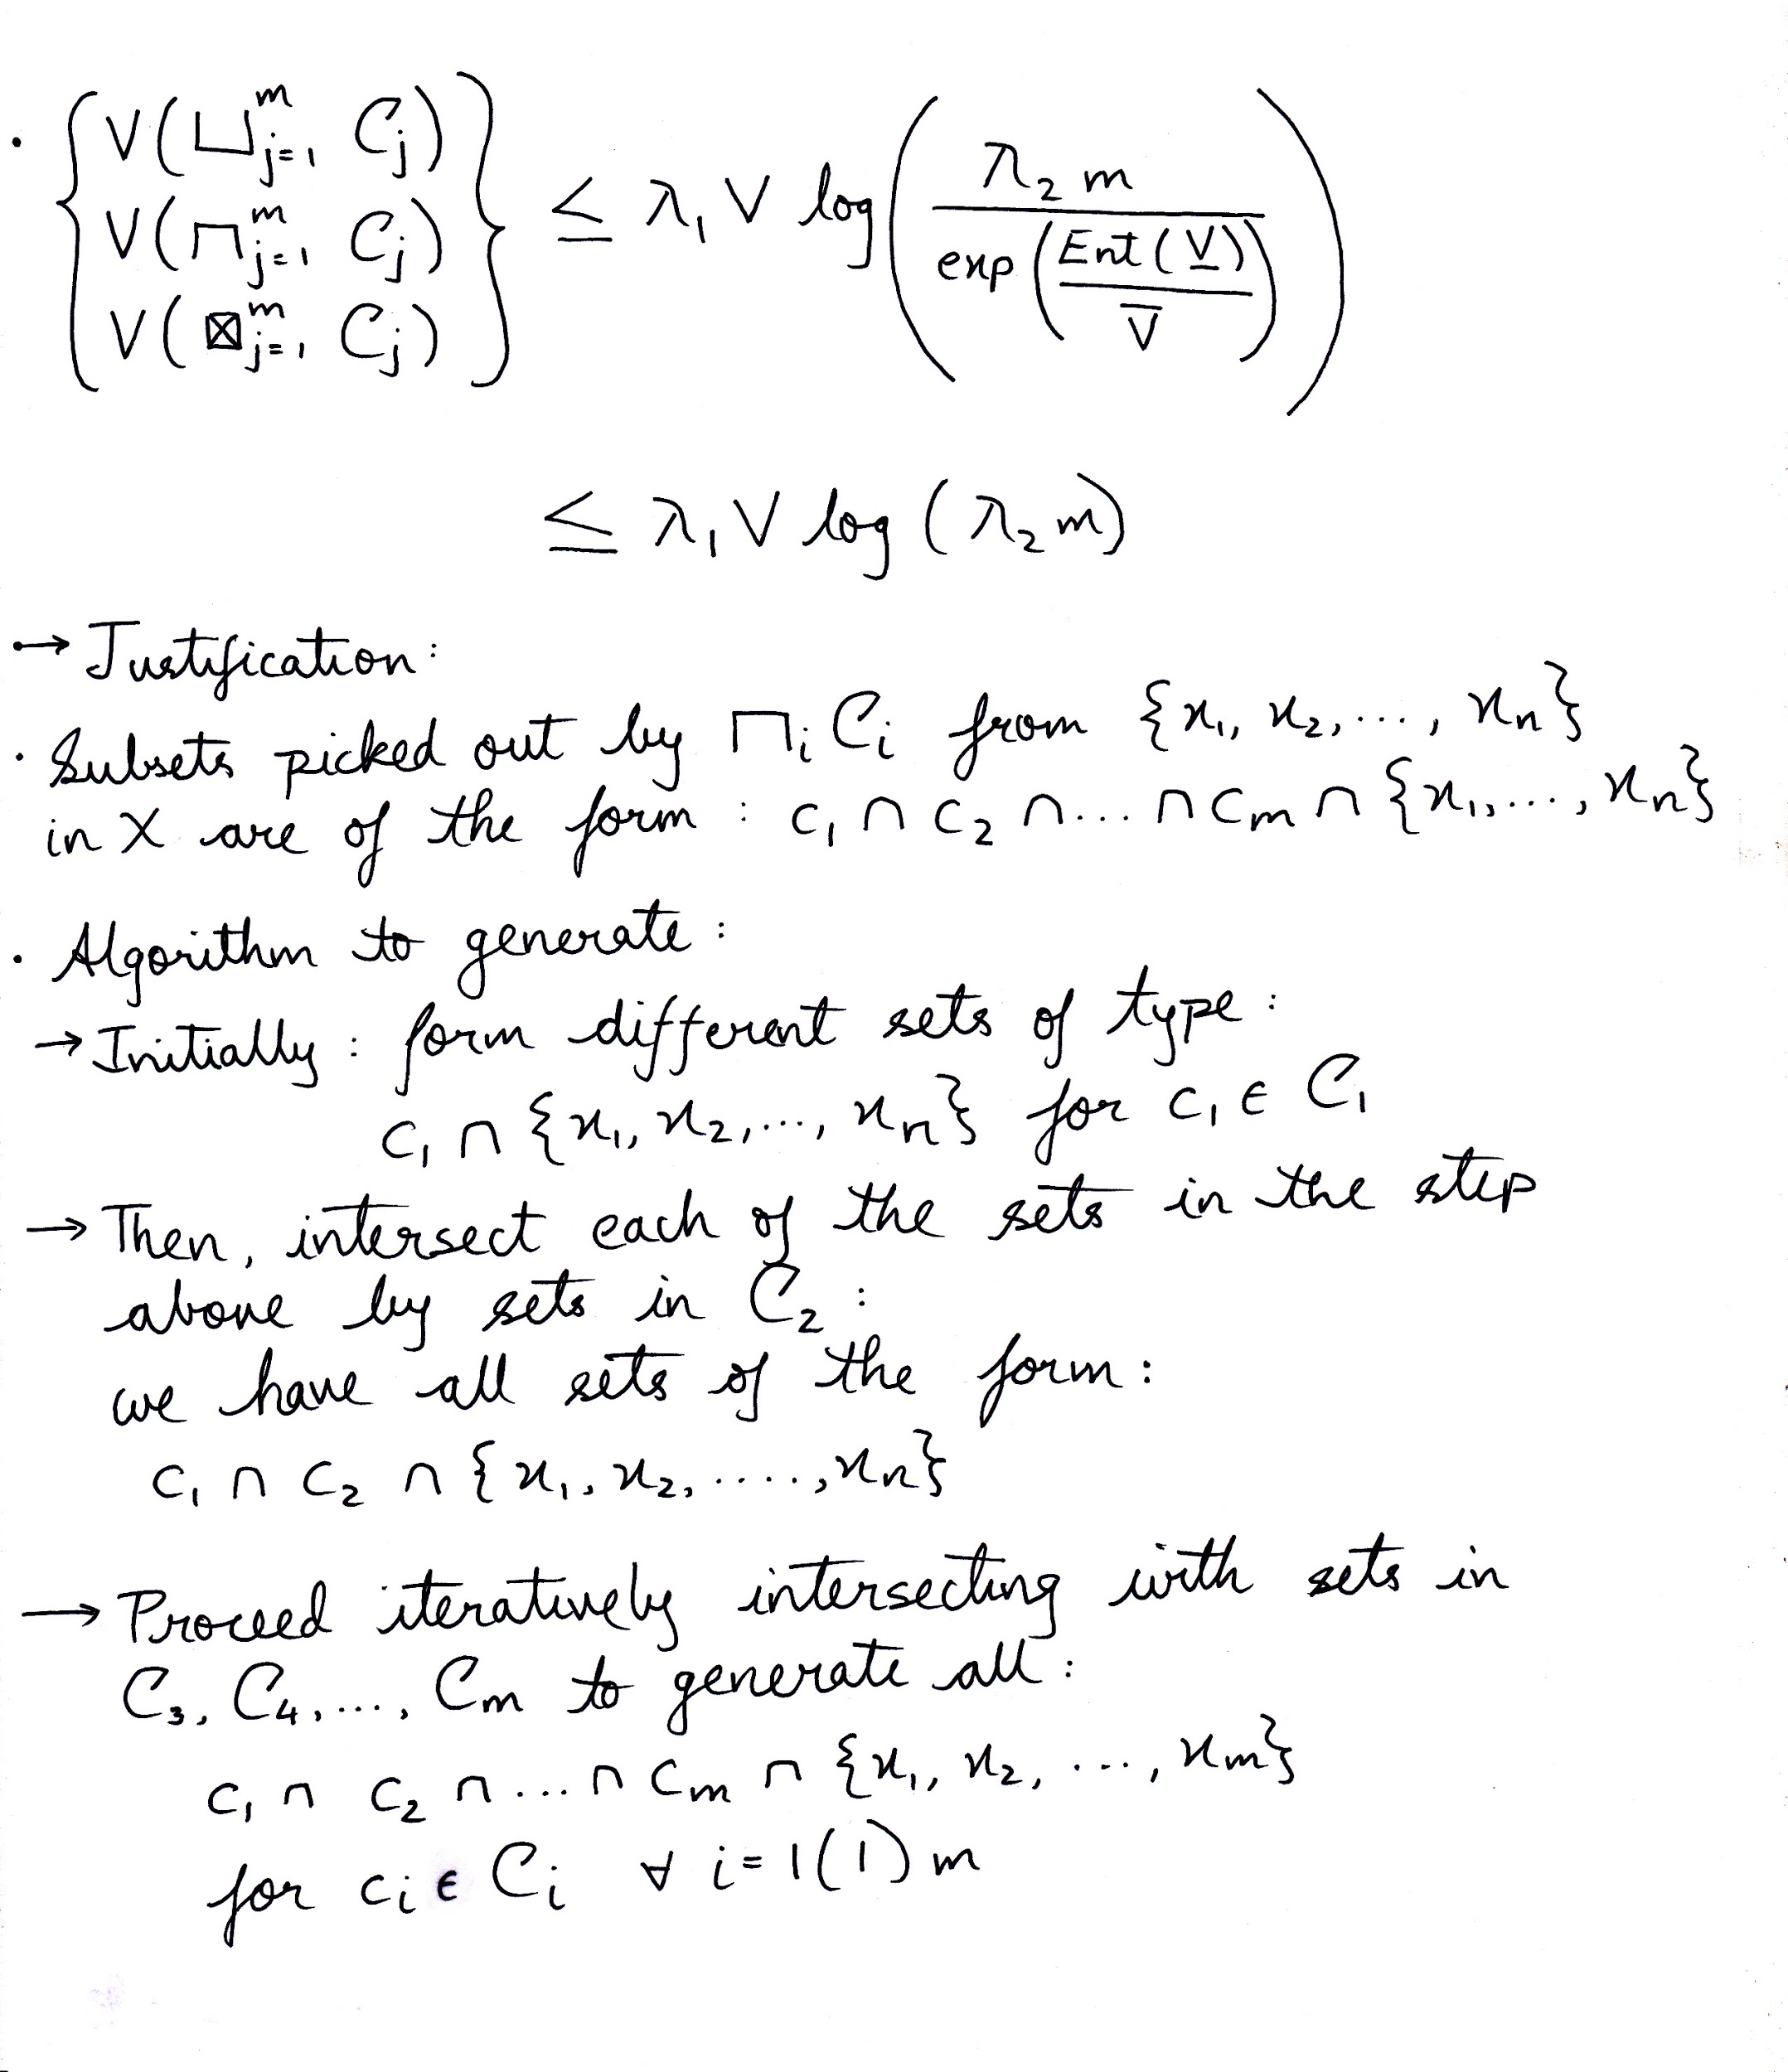 · { V(⊔_{j=1}^m C_j)
V(⊓_{j=1}^m C_j)
V(⊠_{j=1}^m C_j) } ≤ λ_1 V log( λ_2 m / exp( Ent(V̲) / V̄ ) )
≤ λ_1 V log (λ_2 m)
→ Justification:
· Subsets picked out by ⊓_i C_i from {x_1, x_2, ..., x_n}
in X are of the form : c_1 ∩ c_2 ∩ ... ∩ c_m ∩ {x_1, ..., x_n}
· Algorithm to generate :
→ Initially : form different sets of type :
c_1 ∩ {x_1, x_2, ..., x_n} for c_1 ∈ C_1
→ Then, intersect each of the sets in the step
above by sets in C_2 :
we have all sets of the form :
c_1 ∩ c_2 ∩ {x_1, x_2, ....., x_n}
→ Proceed iteratively intersecting with sets in
C_3, C_4, ..., C_m to generate all :
c_1 ∩ c_2 ∩ ... ∩ c_m ∩ {x_1, x_2, ..., x_m}
for c_i ∈ C_i ∀ i = 1(1) m